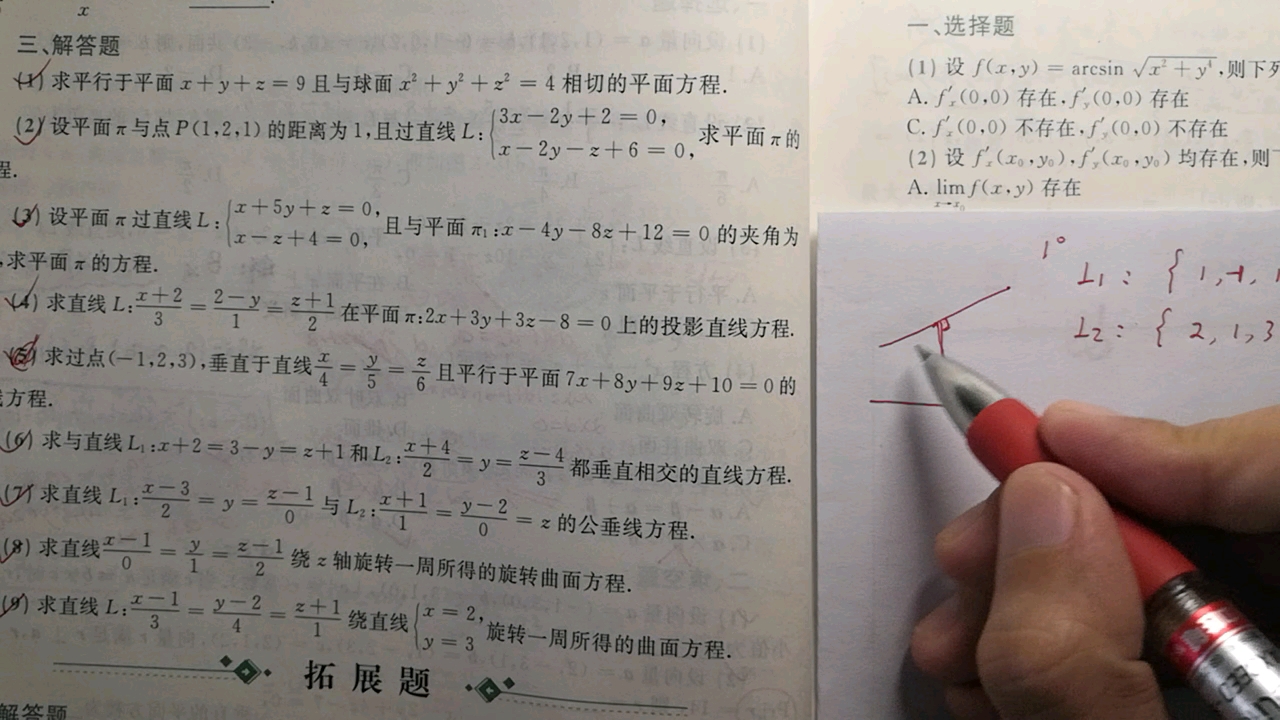 x
三、解答题
(1) 求平行于平面 x+y+z=9 且与球面 x²+y²+z²=4 相切的平面方程.
(2) 设平面 π 与点 P(1,2,1) 的距离为 1,且过直线 L:{3x-2y+2=0, x-2y-z+6=0, 求平面 π 的
程.
(3) 设平面 π 过直线 L:{x+5y+z=0, x-z+4=0, 且与平面 π₁:x-4y-8z+12=0 的夹角为
,求平面 π 的方程.
(4) 求直线 L:(x+2)/3=(2-y)/1=(z+1)/2 在平面 π:2x+3y+3z-8=0 上的投影直线方程.
(5) 求过点(-1,2,3),垂直于直线 x/4=y/5=z/6 且平行于平面 7x+8y+9z+10=0 的
方程.
(6) 求与直线 L₁:x+2=3-y=z+1 和 L₂:(x+4)/2=y=(z-4)/3 都垂直相交的直线方程.
(7) 求直线 L₁:(x-3)/2=y=(z-1)/0 与 L₂:(x+1)/1=(y-2)/0=z 的公垂线方程.
(8) 求直线 (x-1)/0=y/1=(z-1)/2 绕 z 轴旋转一周所得的旋转曲面方程.
(9) 求直线 L:(x-1)/3=(y-2)/4=(z+1)/1 绕直线{x=2, y=3 旋转一周所得的曲面方程.
拓展题
解答题
一、选择题
(1) 设 f(x,y)=arcsin √(x²+y⁴),则下列
A. f′ₓ(0,0) 存在,f′ᵧ(0,0) 存在
C. f′ₓ(0,0) 不存在,f′ᵧ(0,0) 不存在
(2) 设 f′ₓ(x₀,y₀),f′ᵧ(x₀,y₀) 均存在,则
A. lim f(x,y) 存在
x→x₀
1°
L₁: { 1,-1,1
L₂: { 2,1,3